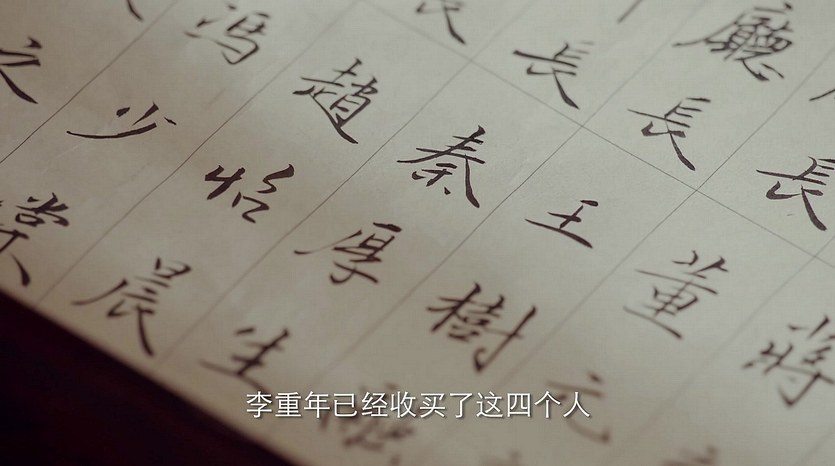 蔣
長董元
廳長王樹
長秦厚生
長趙怡晨
馮少棠
文
李重年已经收买了这四个人